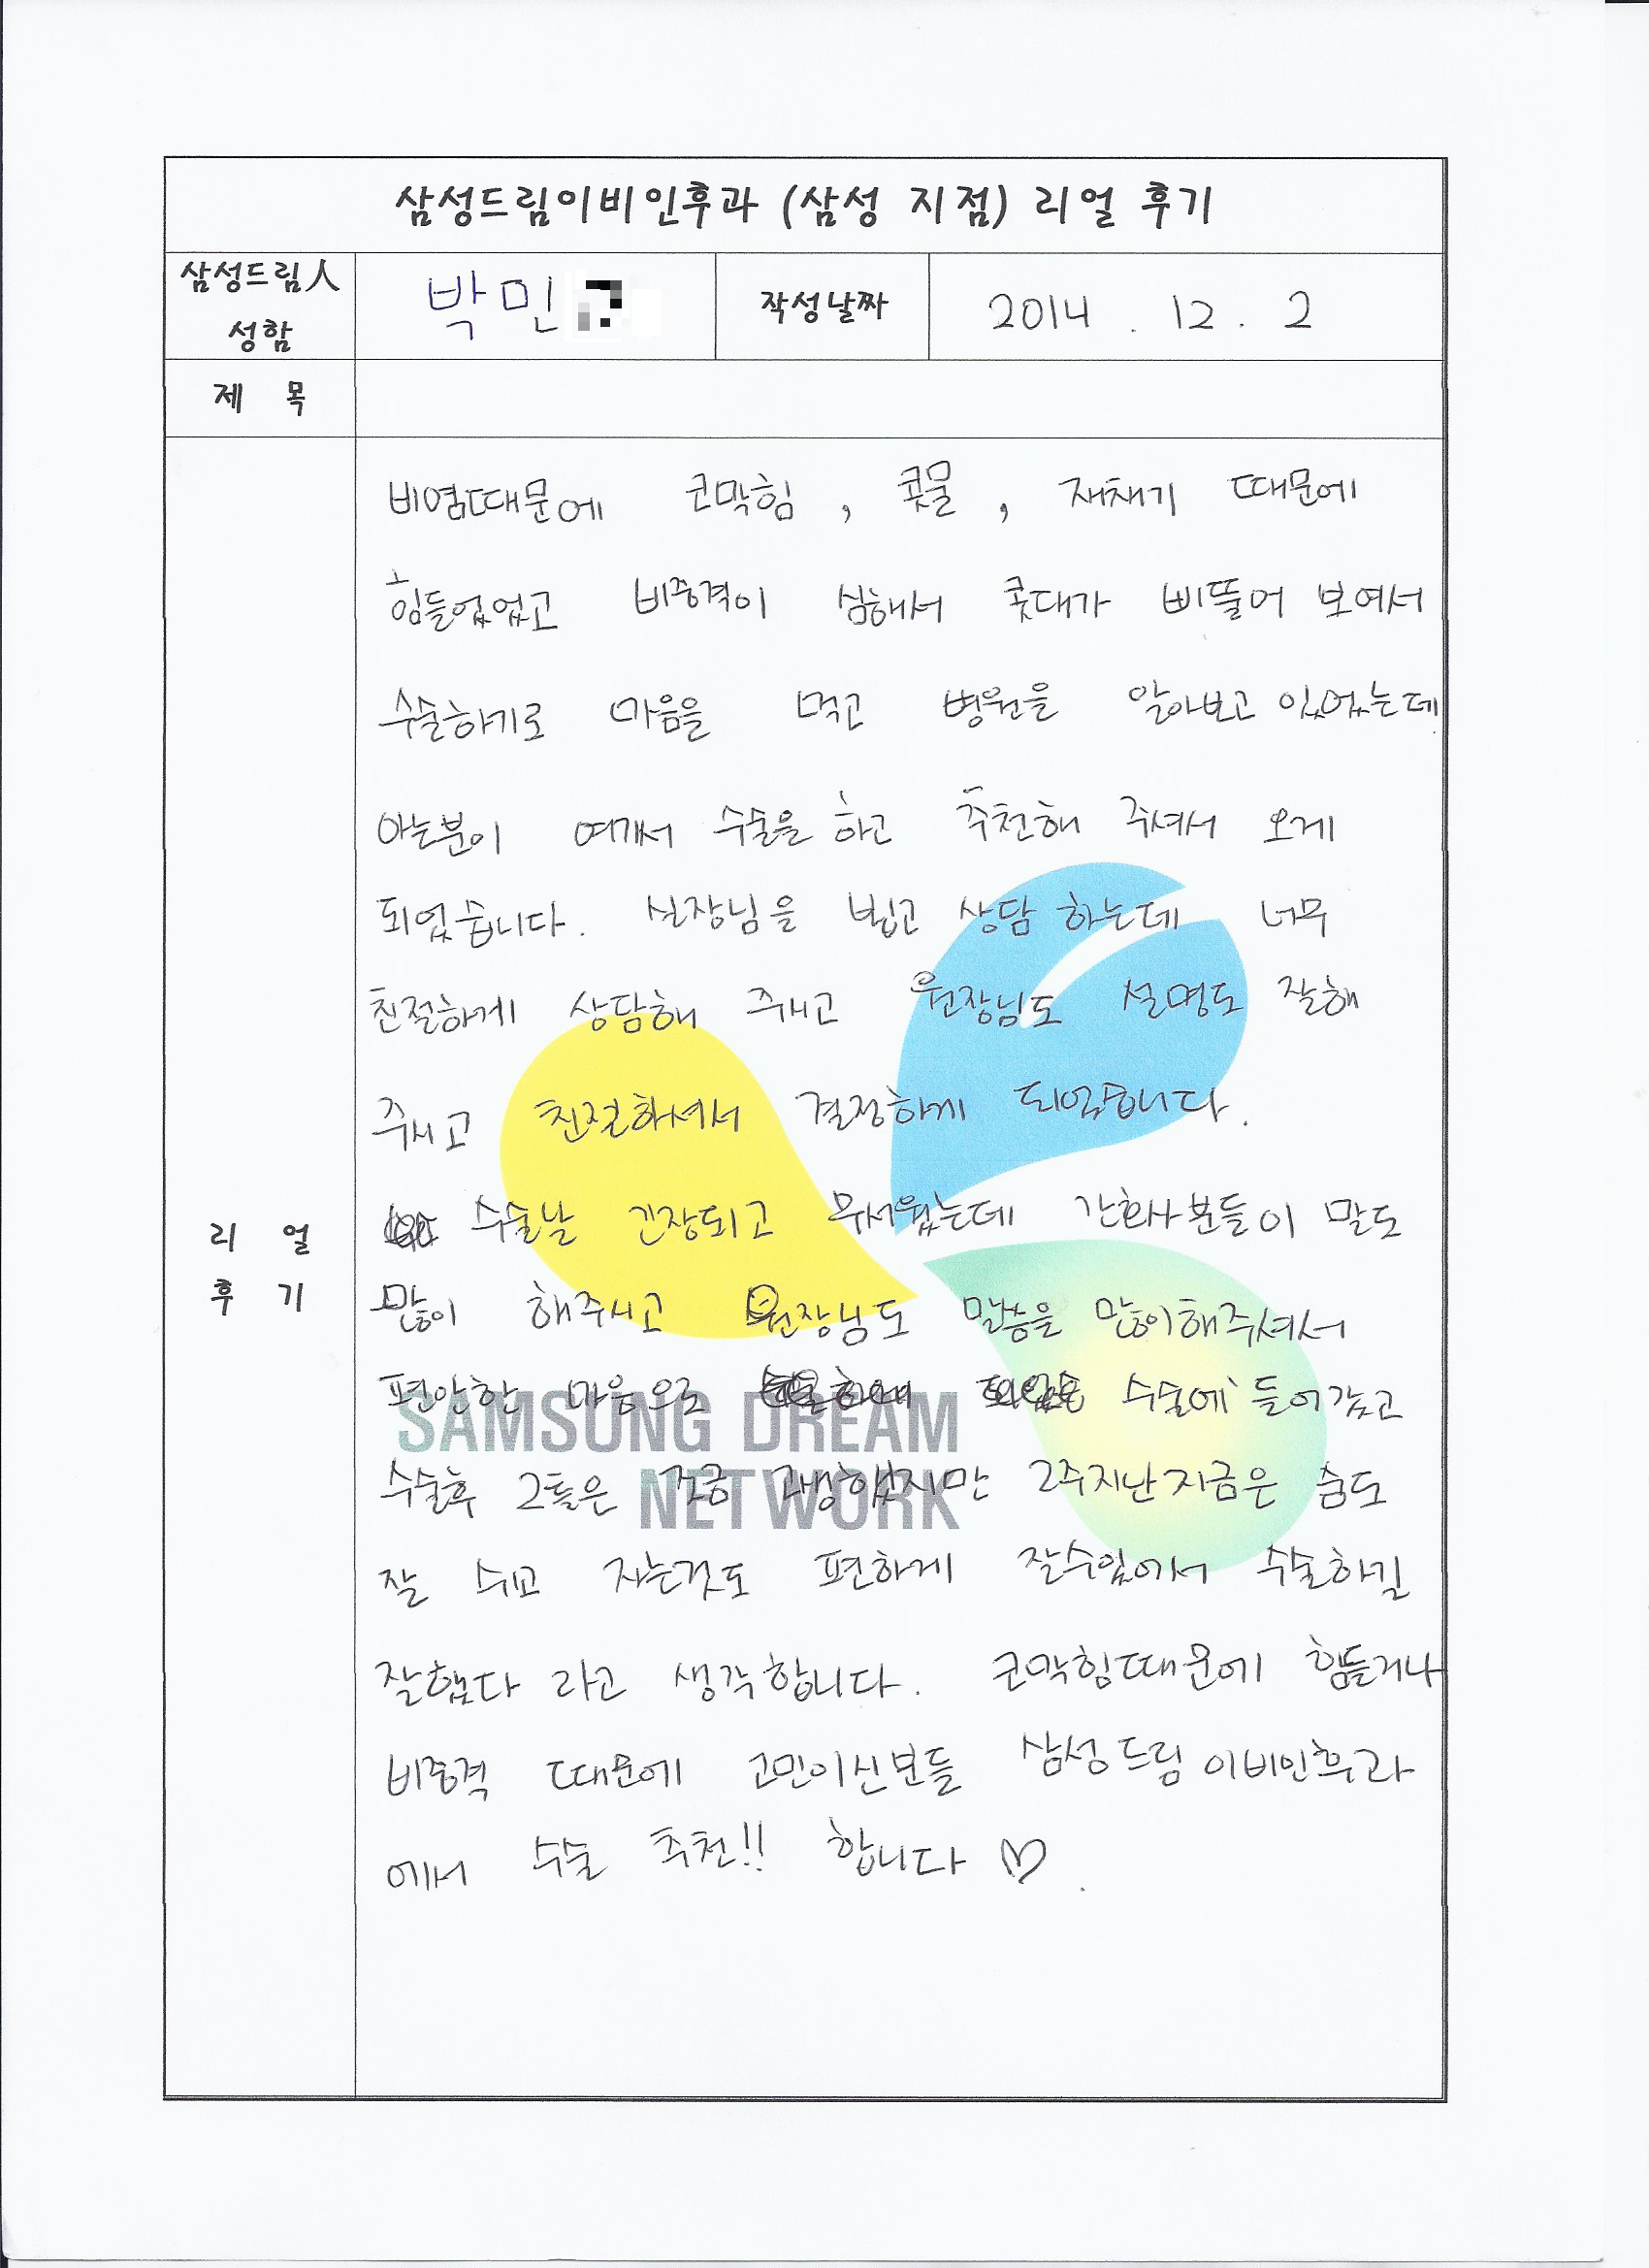 삼성드림이비인후과 (삼성 지점) 리얼 후기
삼성드림人
성함
박민
작성날짜
2014 . 12 . 2
제 목
리 얼
후 기
비염때문에 코막힘 , 콧물 , 재채기 때문에
힘들었었고 비중격이 심해서 콧대가 삐뚤어 보여서
수술하기로 마음을 먹고 병원을 알아보고 있었는데
아는분이 여기서 수술을 하고 추천해 주셔서 오게
되었습니다. 실장님을 뵙고 상담 하는데 너무
친절하게 상담해 주시고 원장님도 설명도 잘해
주시고 친절하셔서 결정하게 되었습니다.
수술날 긴장되고 무서웠는데 간호사분들이 말도
많이 해주시고 원장님도 말씀을 많이해주셔서
편안한 마음으로 수술에 들어갔고
수술후 2틀은 조금 고생했지만 2주지난지금은 숨도
잘 쉬고 자는것도 편하게 잘수있어서 수술하길
잘했다 라고 생각합니다. 코막힘때문에 힘들거나
비중격 때문에 고민이신분들 삼성드림이비인후과
에서 수술 추천!! 합니다 ♡.
SAMSUNG DREAM
NETWORK